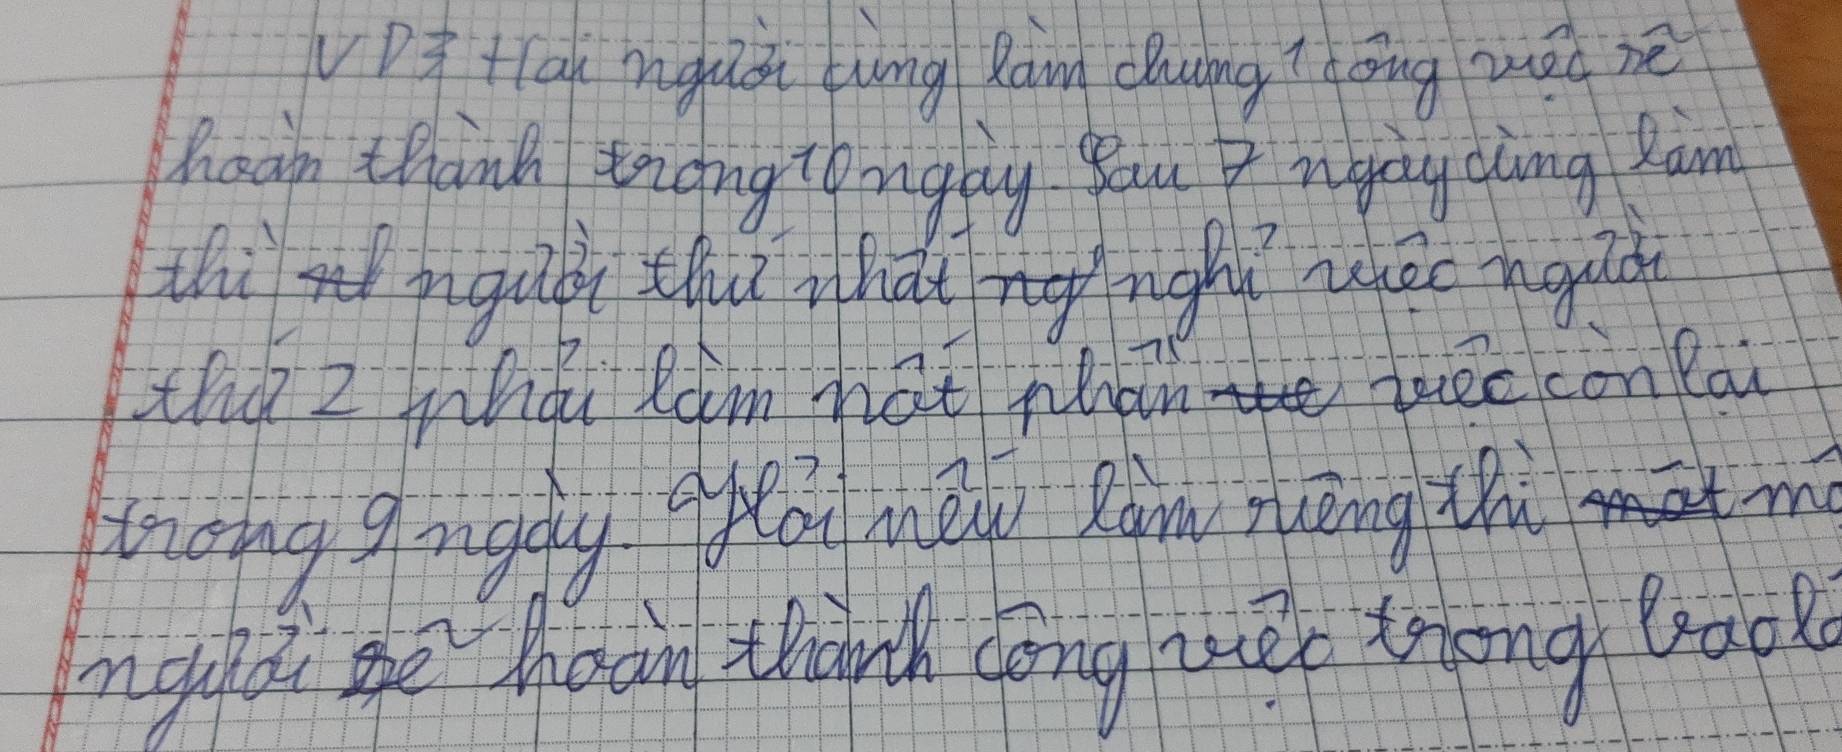 VD3 Hai người cùng làm chung 1 công việc sẽ
hoàn thành trong 10 ngày. Sau 7 ngày cùng làm
thì người thứ nhất nghỉ việc người
thứ 2 phải làm nốt phần việc còn lại
trong 9 ngày. Hỏi nếu làm riêng thì mỗ
người sẽ hoàn thành công việc trong bao l